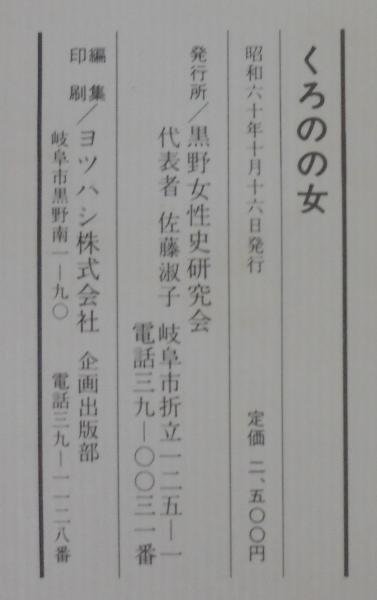 くろのの女
昭和六十年十月十六日発行　定価 二、五〇〇円
発行所／黒野女性史研究会
代表者 佐藤淑子 岐阜市折立一二五―一
電話三九―〇〇三一番
編集
印刷／ヨツハシ株式会社 企画出版部
岐阜市黒野南一―九〇　電話三九―一一二八番